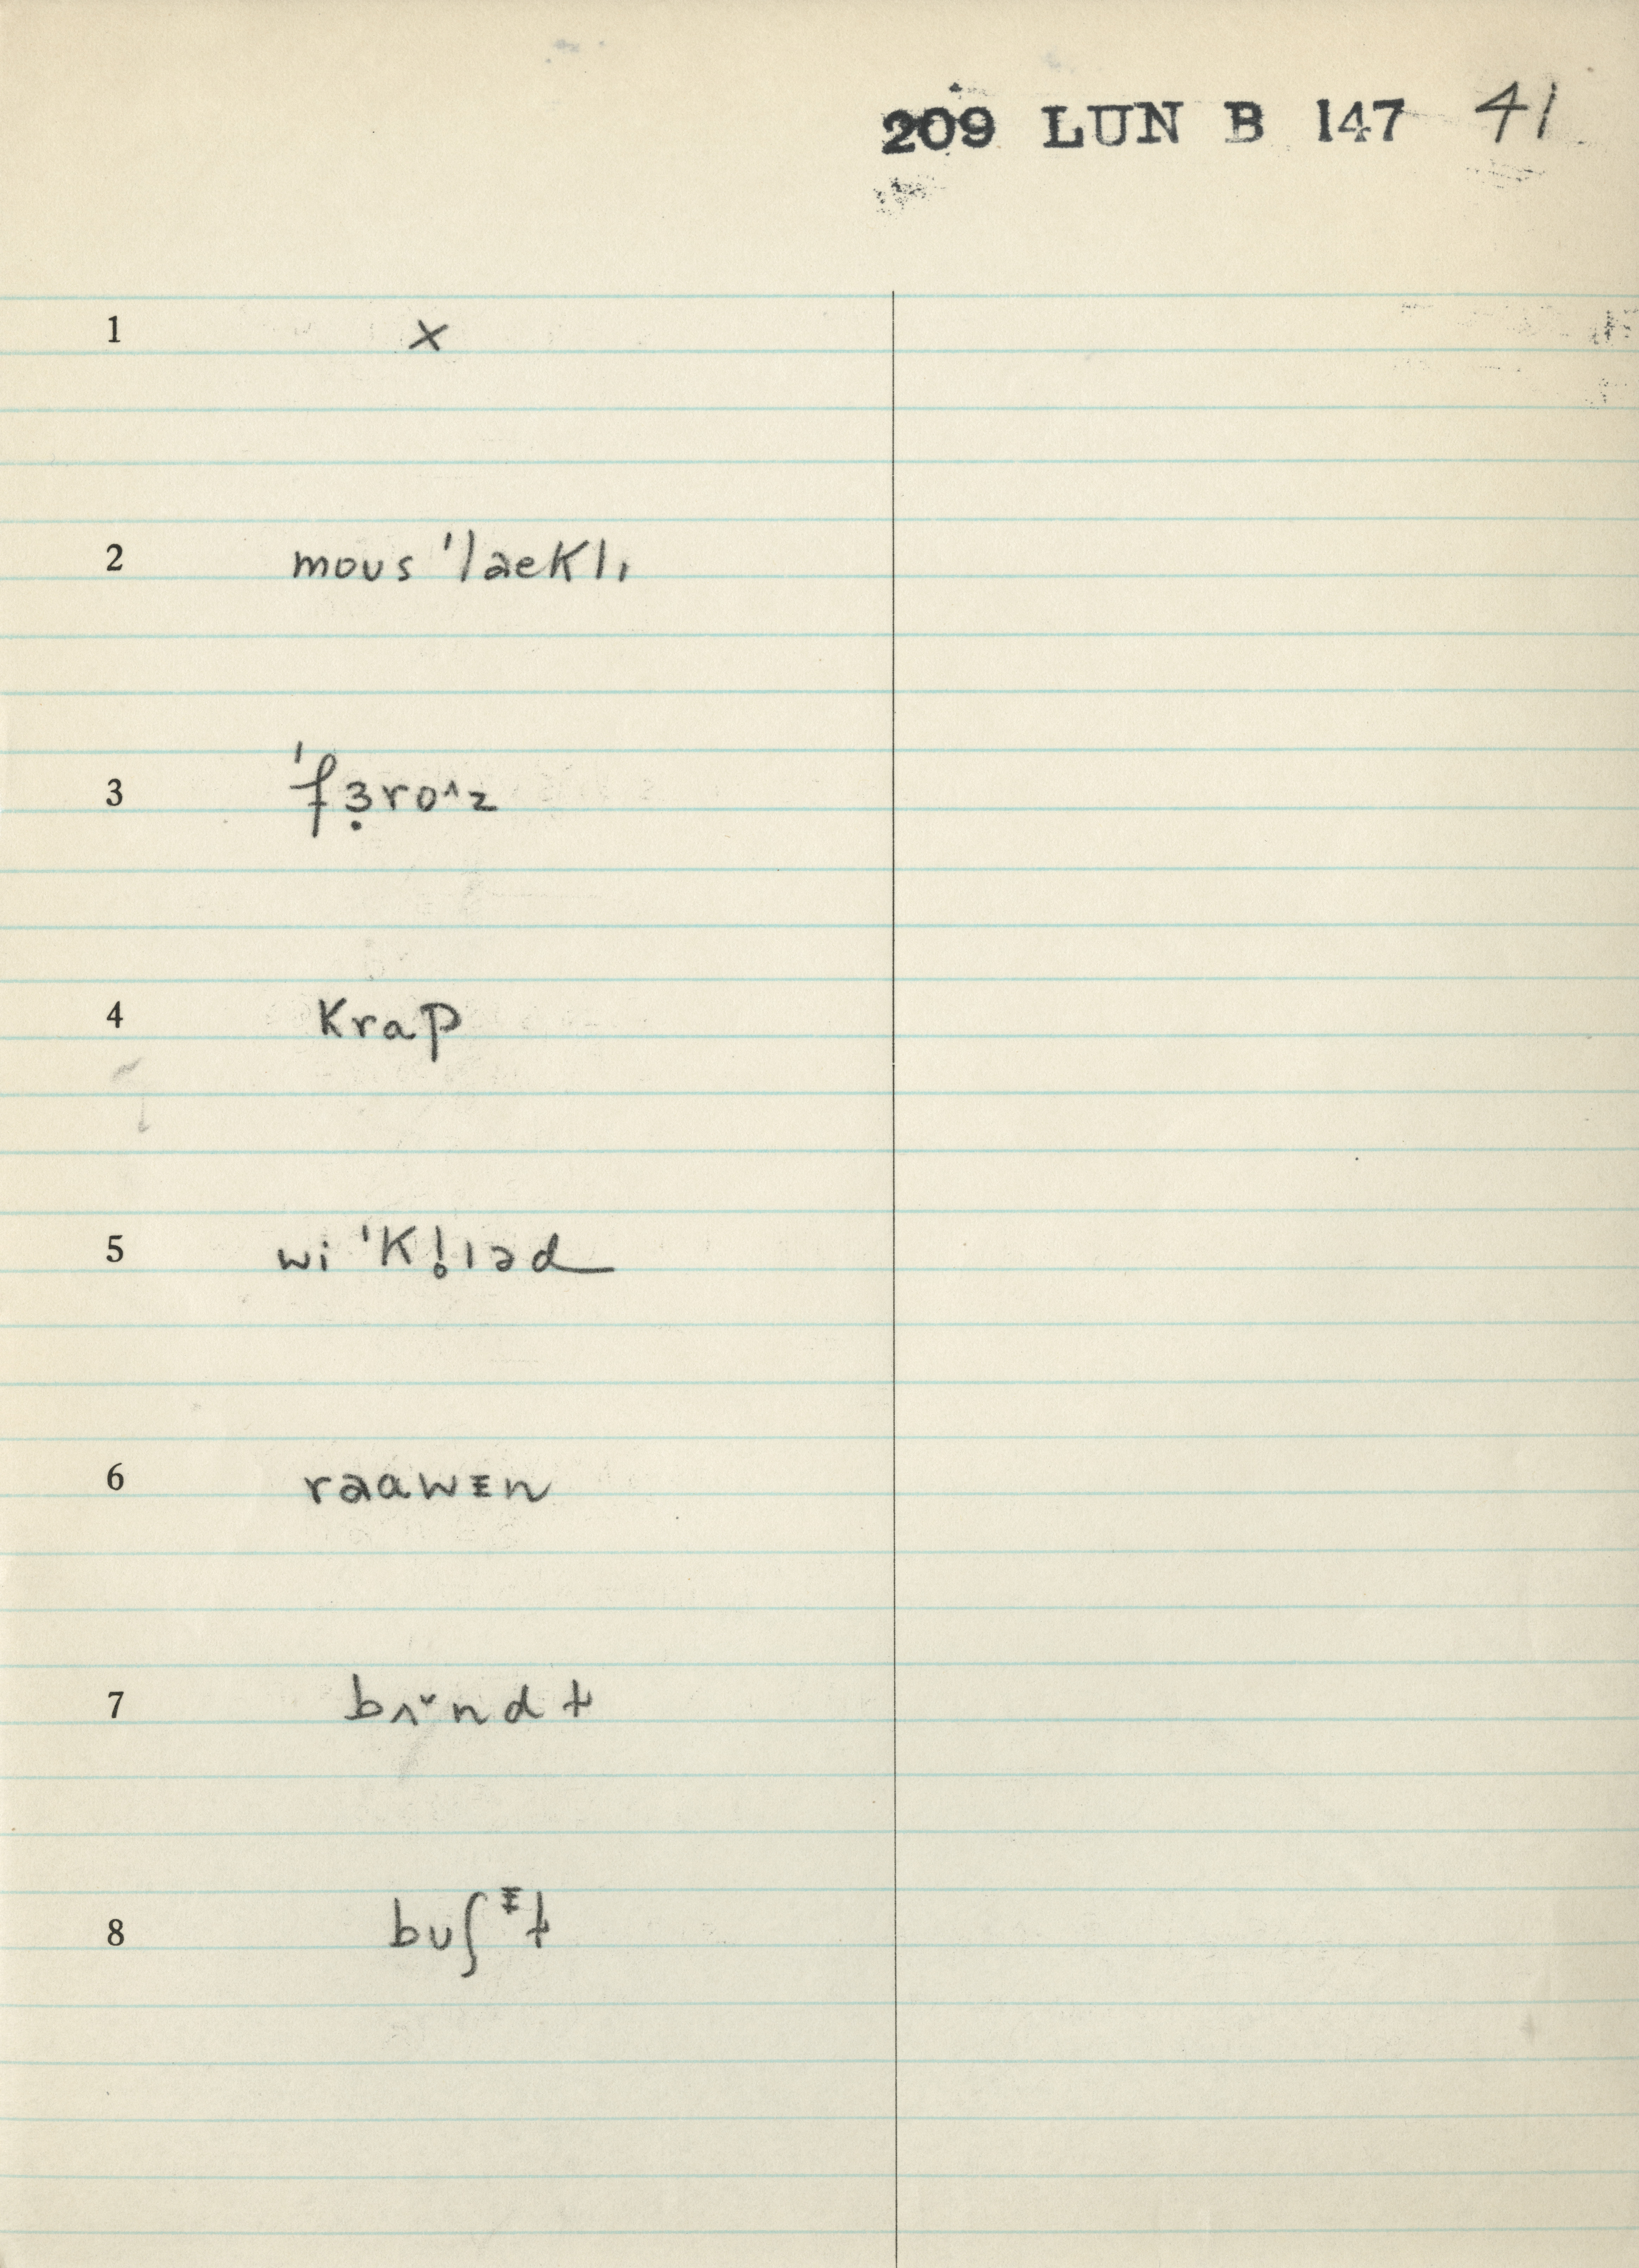 209 LUN B 147 41
1 x
2 moʊs ˈlaeklɪ
3 ˈfɜ̣ro^z
4 krap
5 wi ˈk!ɪəd
6 raawᵻn
7 bʌˇnd t
8 bʊʃᵻt